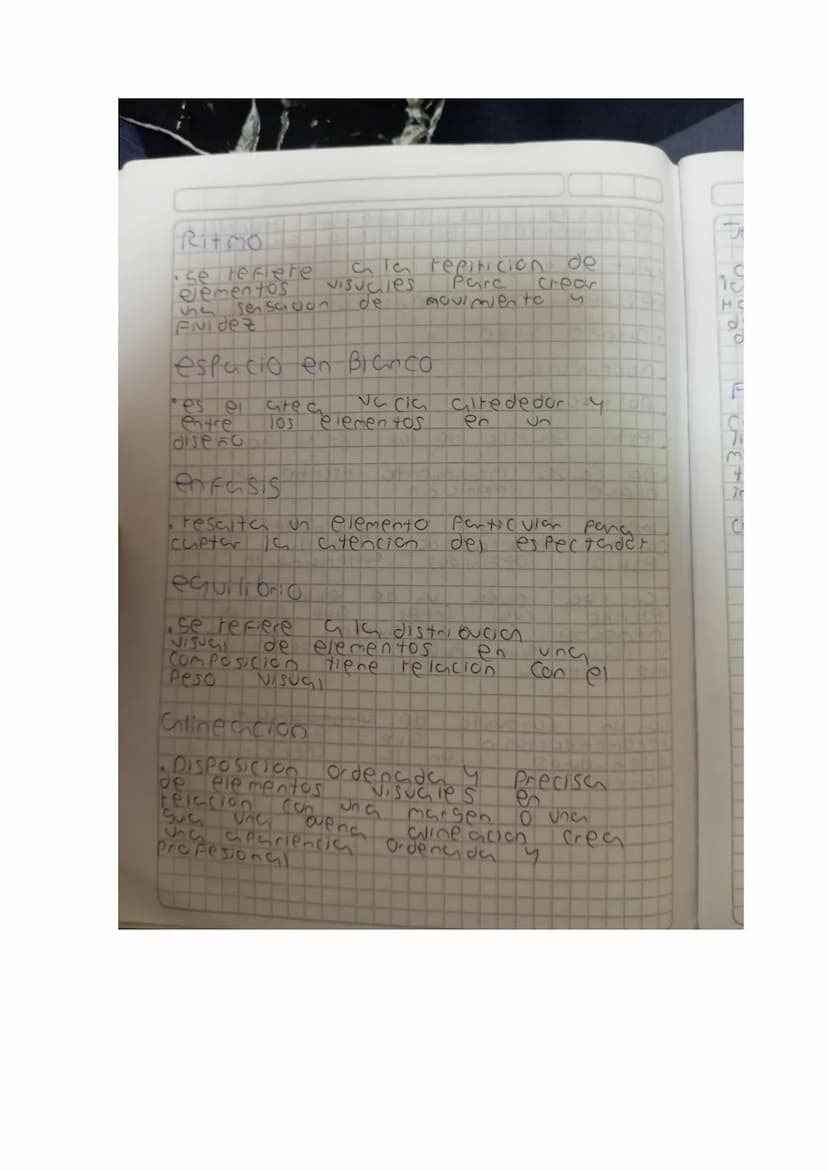 Ritmo
. se refiere a la repiticion de
elementos visuales para crear
una sensacion de movimiento y
Fluidez
espacio en Blanco
• es el area vacia alrededor y
entre los elementos en un
diseño
enfasis
. resalta un elemento particular para
captar la atencion del espectador
equilibrio
. se refiere a la distribucion
visual de elementos en una
composicion tiene relacion con el
peso visual
alineacion
. Disposicion ordenada y precisa
de elementos visuales en
relacion con una margen o una
guia una buena alineacion crea
una apariencia ordenada y
profesional